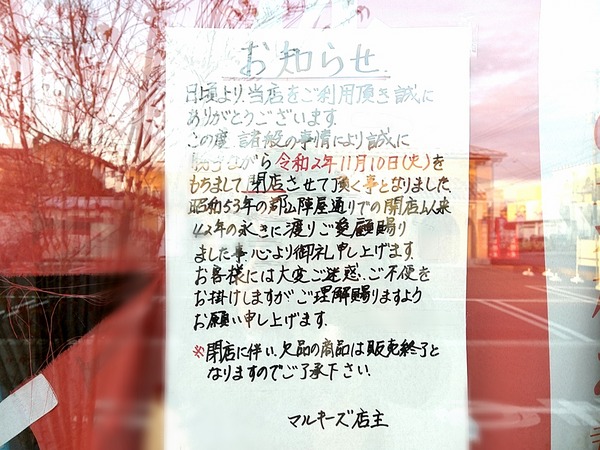 お知らせ
日頃より、当店をご利用頂き誠に
ありがとうございます。
この度、諸般の事情により誠に
勝手ながら令和2年11月10日(火)を
もちまして、閉店させて頂く事となりました。
昭和53年の郡山陣屋通りでの開店以来
42年の永きに渡りご愛顧賜り
ました事、心より御礼申し上げます。
お客様には大変ご迷惑、ご不便を
お掛けしますがご理解賜りますよう
お願い申し上げます。
※閉店に伴い、欠品の商品は販売終了と
なりますのでご了承下さい。
マルキーズ店主